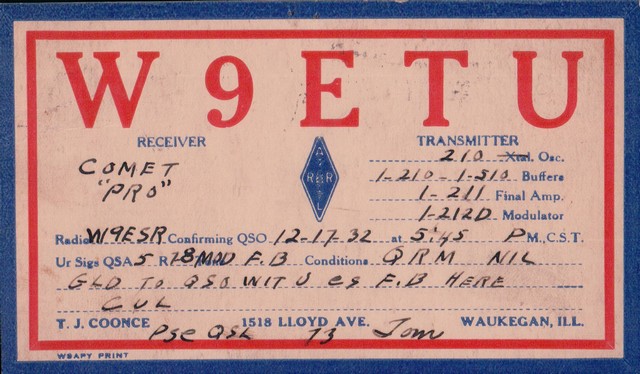 W9ETU
RECEIVER
COMET
"PRO"
A
R R
L
TRANSMITTER
210 Xtal. Osc.
1-210-1-510 Buffers
1-211 Final Amp.
1-212D Modulator
Radio W9ESR Confirming QSO 12-17-32 at 5:45 P M., C.S.T.
Ur Sigs QSA 5 R 7-8 MOD F.B Conditions QRM NIL
GLD TO QSO WIT U ES F.B HERE
CUL
T. J. COONCE 1518 LLOYD AVE. WAUKEGAN, ILL.
Pse QSL 73 Tom
W8APY PRINT